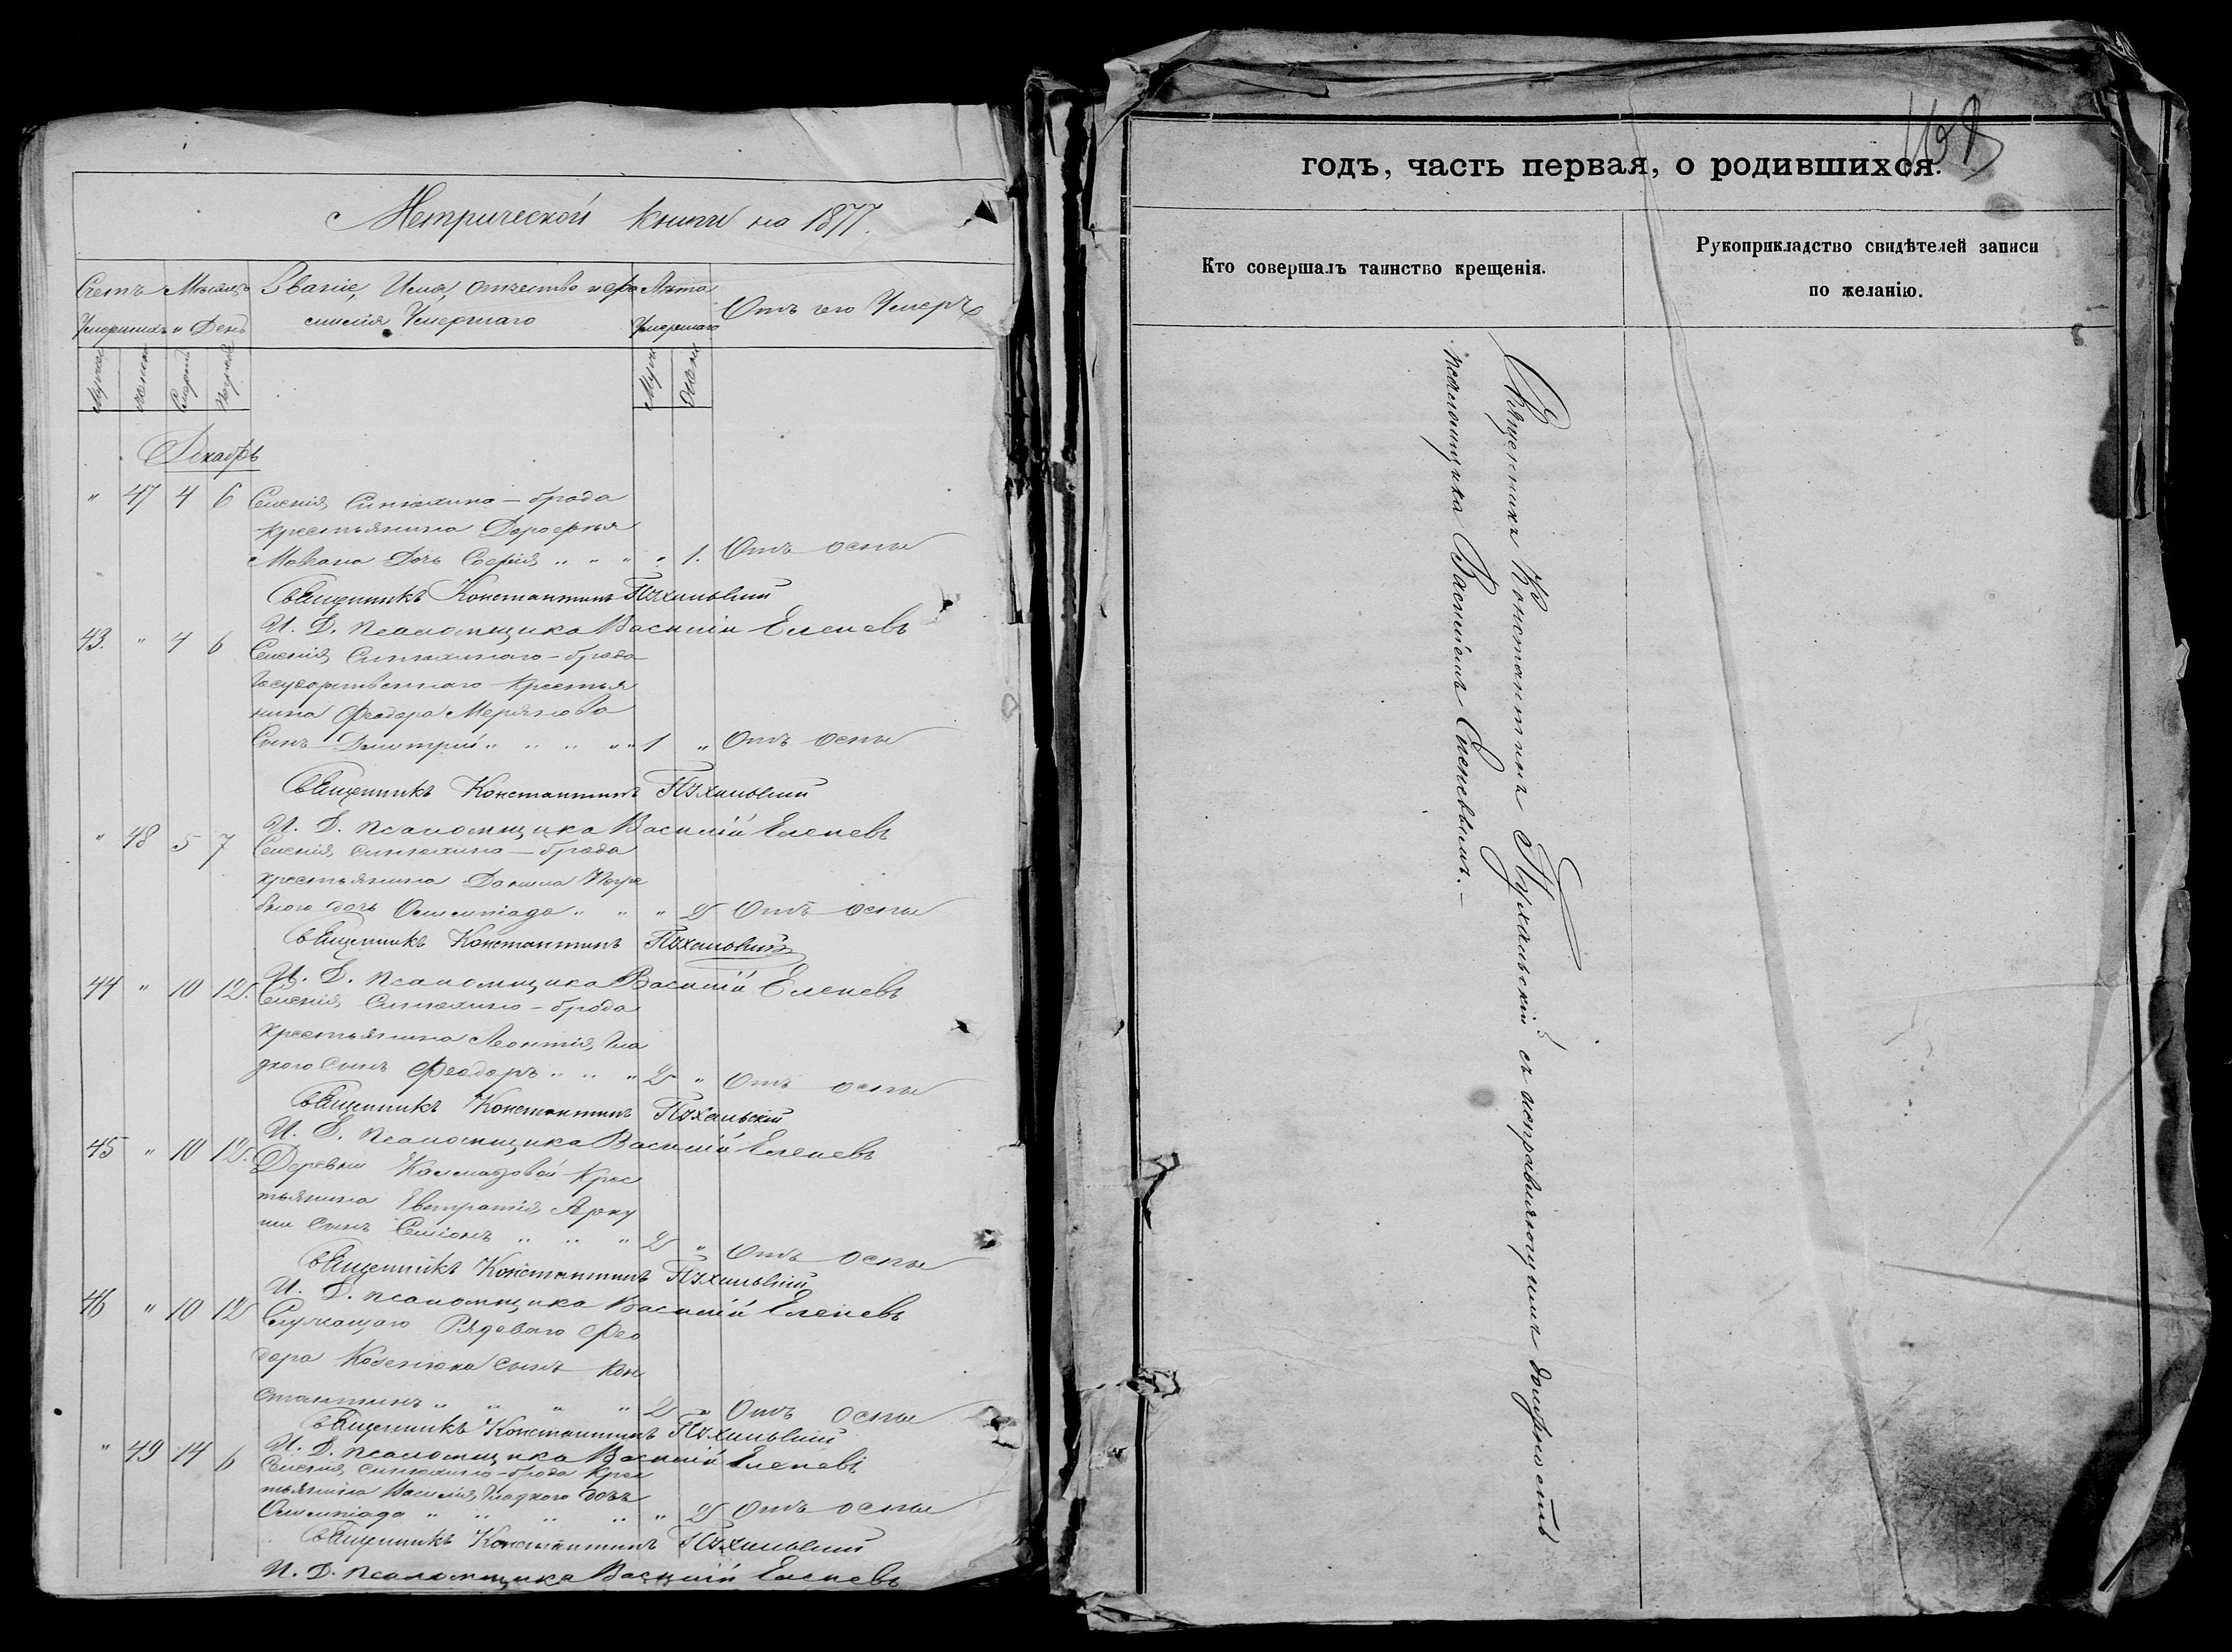 Метрической книги на 1877.
Счетъ Умершихъ
Мѣсяцъ и День
Званіе, Имя, Отчество и фа
милія Умершаго
Лѣта Умершаго
Отъ чего Умеръ
Мужск
Женск
Смерти
Погреб
Мужск
Женск
Декабрь
" 47 4 6 Селенія Синюхина-брода
крестьянина Дороѳея
Мовчана Дочь Софія " " " " 1. Отъ оспы
Священникъ Константинъ Пухальскій
И. Д. псаломщика Василій Еленевъ
43. " 4 6 Селенія Синюхинаго-брода
Государственнаго крестья
нина Феодора Мерянова
Сынъ Димитрій " " " " " 1 " Отъ оспы
Священникъ Константинъ Пухальскій
И. Д. псаломщика Василій Еленевъ
" 48 5 7 Селенія Синюхина-брода
крестьянина Данила Погре
бного дочь Олимпіада " " " 2 Отъ оспы
Священникъ Константинъ Пухальскій
И. Д. псаломщика Василій Еленевъ
44 " 10 12. Селенія Синюхино-брода
крестьянина Леонтія Гла
дкого Сынъ Феодоръ " " " 2 " Отъ оспы
Священникъ Константинъ Пухальскій
И. Д. псаломщика Василій Еленевъ
45 " 10 12. Деревни Калмазовой Крес
тьянина Евстратія
сынъ Симіонъ " " " 2 " Отъ оспы
Священникъ Константинъ Пухальскій
И. Д. псаломщика Василій Еленевъ
46 " 10 12 Служащаго Рядеваго Фео
дора Козенюка сынъ Кон
стантинъ " " " " 2 " Отъ оспы
Священникъ Константинъ Пухальскій
И. Д. псаломщика Василій Еленевъ
" 49 14 6 Селенія Синюхино-брода Крес
тьянина Василія Гладкого дочь
Олимпіада " " " " " 2 Отъ оспы
Священникъ Константинъ Пухальскій
И. Д. псаломщика Василій Еленевъ
годъ, часть первая, о родившихся.
Кто совершалъ таинство крещенія.
Рукоприкладство свидѣтелей записи
по желанію.
Священникъ Константинъ Пухальскій съ исправляющимъ должность
псаломщика Василіемъ Еленевымъ.-